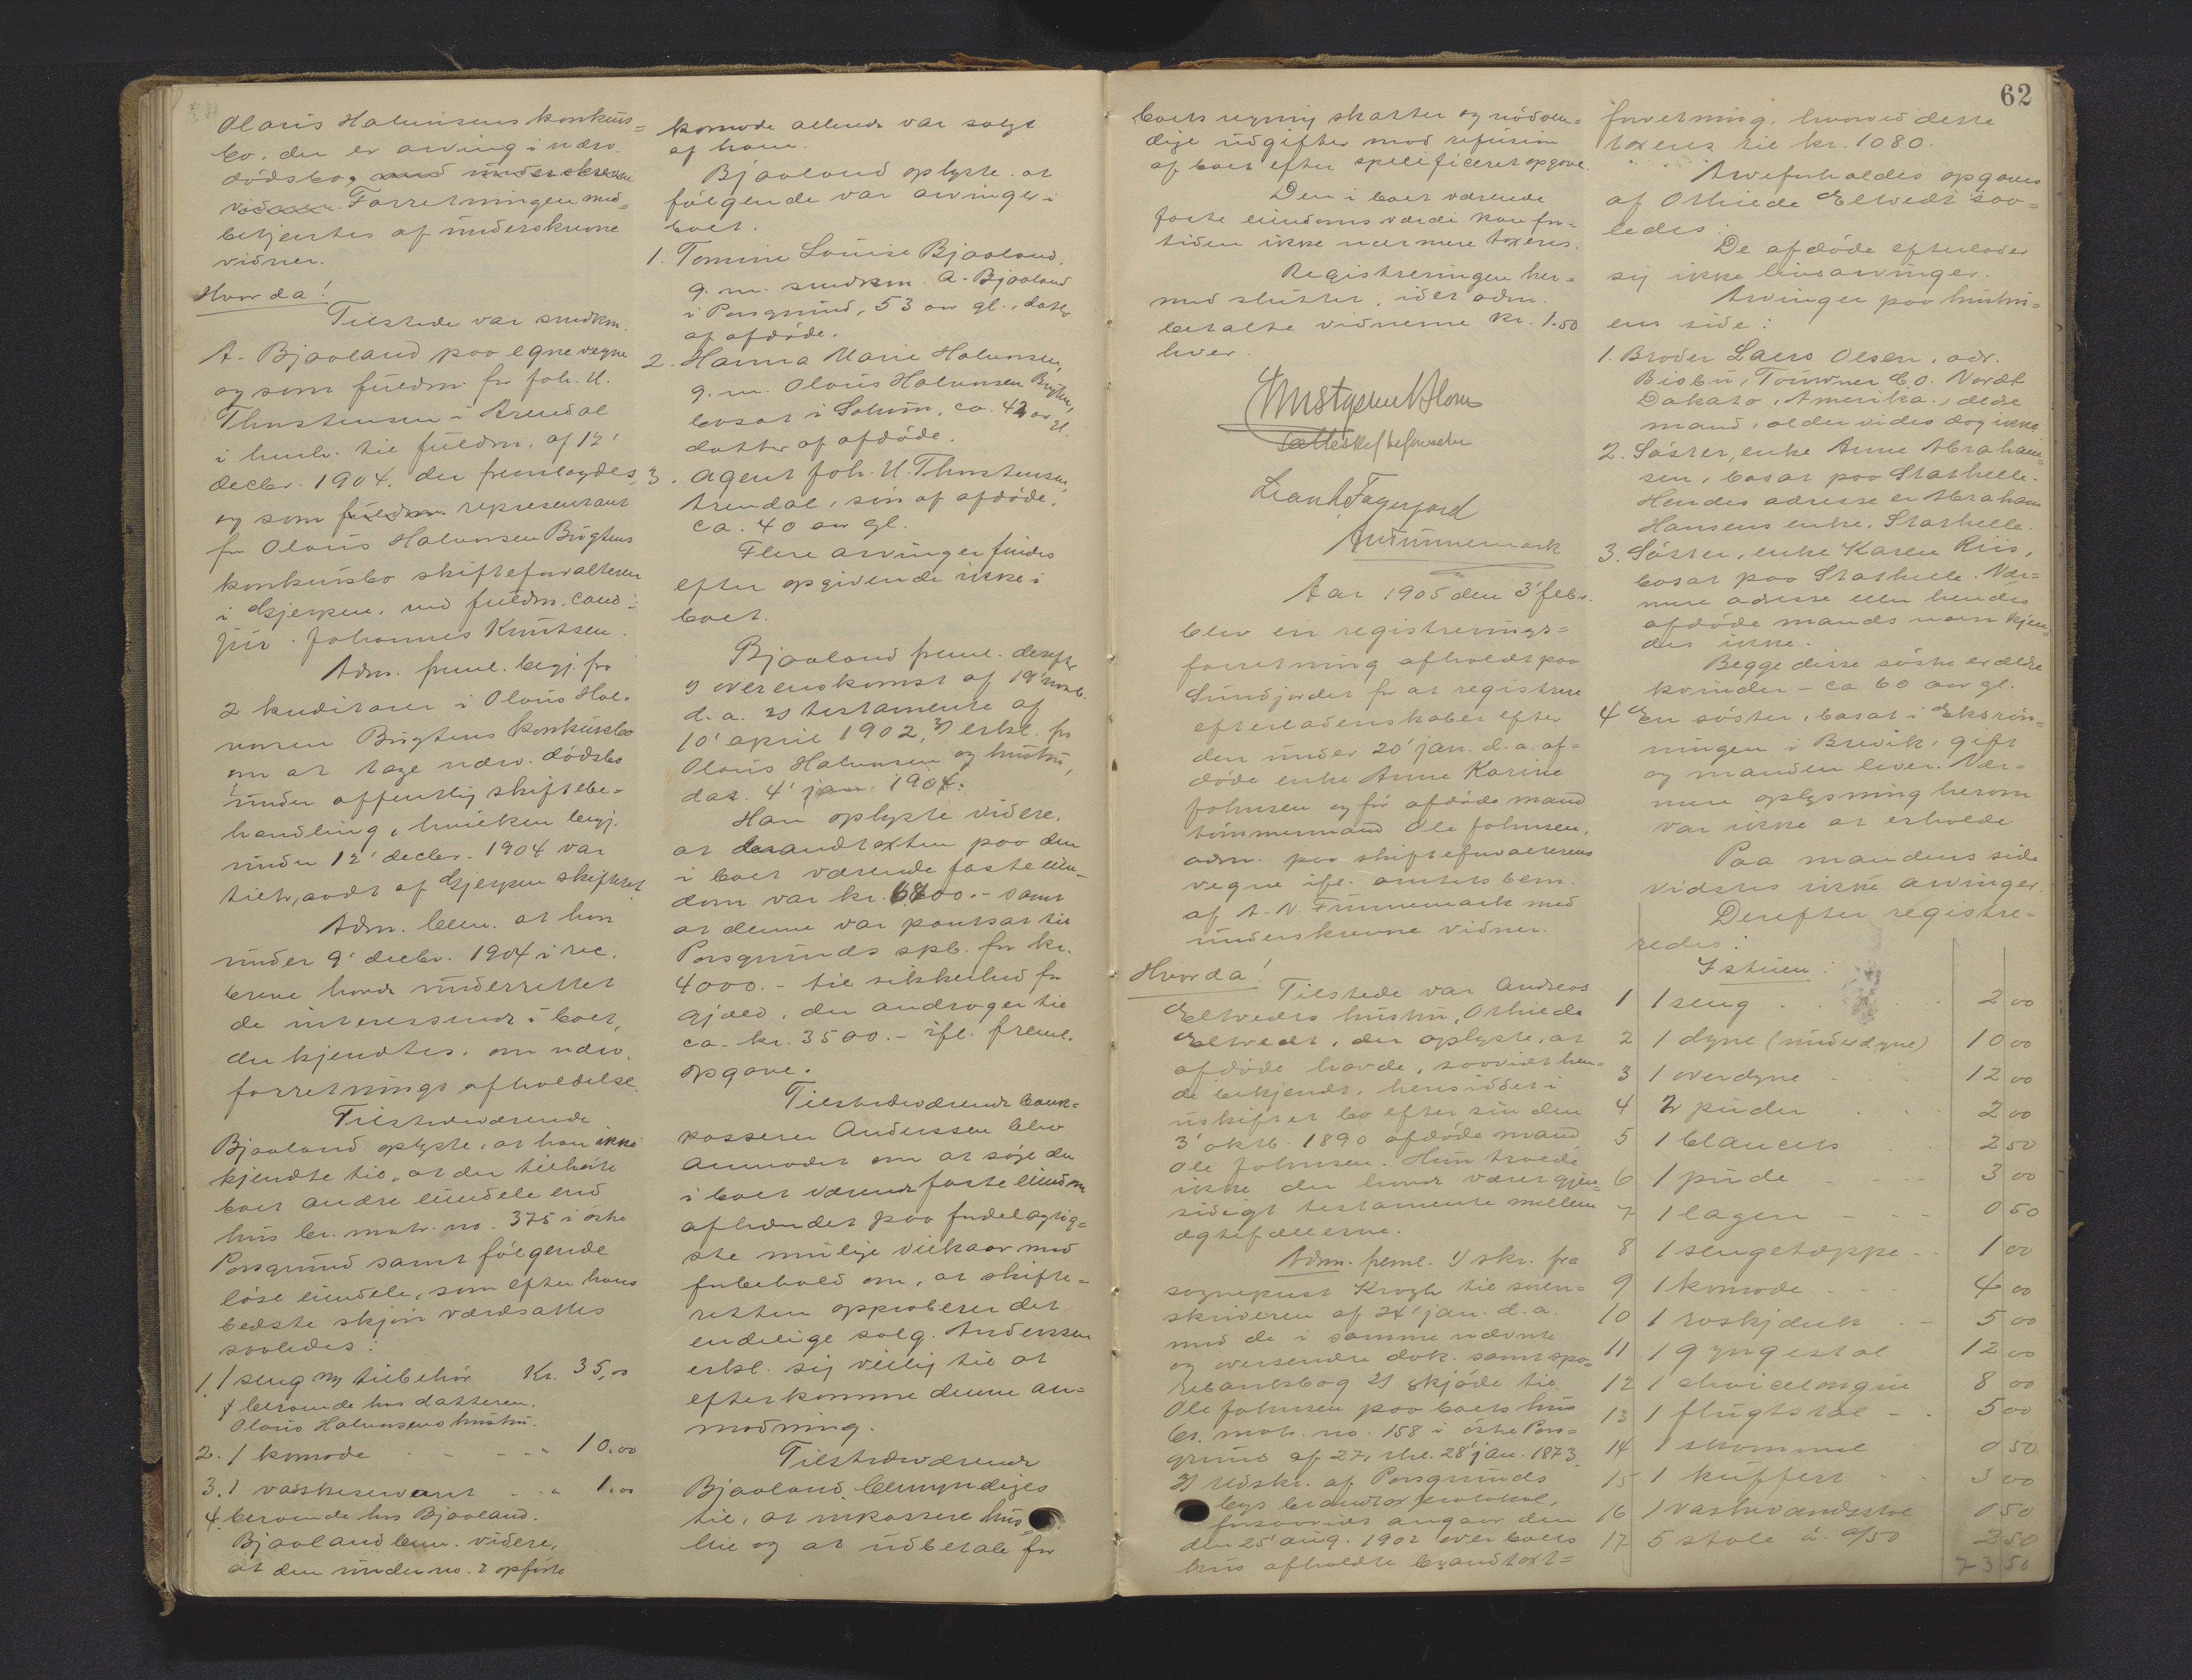 Olaus Halvorsens konkurs=
bo, der er arving i nærv.
dødsbo, med underskrevne
vidner. Forretningen med=
betjentes af underskrevne
vidner.
Hvorda!
Tilstede var snedkm.
A. Bjaaland paa egne vegne
og som fuldm. for Joh. U.
Thorstensen i Arendal
i henh. til fuldm. af 12'
decbr. 1904, der fremlagdes,
og som fuldm. repræsentant
for Olaus Halvorsen Bugtens
konkursbo skifteforvalteren
i Gjerpen, ved fuldm. cand.
jur. Johannes Knutsen.
Adm. freml. begj. fra
2 kreditorer i Olaus Hal=
vorsen Bugtens konkursbo
om at tage nærv. dødsbo
under offentlig skiftebe=
handling, hvilken begj.
under 12' decbr. 1904 var
af Gjerpen skifteret
Adm. bem. at han
under 9' decbr. 1904 i rec.
breve havde underrettet
de interesserede i boet,
der kjendtes, om nærv.
forretnings afholdelse.
Tilstedeværende
Bjaaland oplyste, at han ikke
kjendte til, at der tilhørte
boet andre eiendele end
hus br. matr. no. 375 i østre
Porsgrund samt følgende
løse eiendele, som efter hans
bedste skjøn værdsattes
saaledes:
1. 1 seng m/ tilbehør Kr. 35,00
beroende hos datteren,
Olaus Halvorsens hustru.
2. 1 komode - - - " 10.00
3. 1 vaskeservant - " 1.00
4. beroende hos Bjaaland.
Bjaaland bem. videre,
at den under no. 2 opførte
komode allerede var solgt
af ham.
Bjaaland oplyste at
følgende var arvinger i
boet.
1. Tomine Louise Bjaaland,
g. m. snedkm. A. Bjaaland
i Porsgrund, 53 aar gl., datter
af afdøde.
2. Hanna Marie Halvorsen,
g. m. Olaus Halvorsen Bugten,
bosat i Solum, ca. 42 aar gl.
datter af afdøde.
3. Agent Joh. U. Thorstensen,
Arendal, søn af afdøde,
ca. 40 aar gl.
Flere arvinger findes
efter opgivende ikke i
boet.
Bjaaland freml. derefter
1) overenskomst af 19' novb.
d. a. 2) testamente af
10' april 1902, 3) erkl. fra
Olaus Halvorsen og hustru,
dat. 4' jan. 1904.
Han oplyste videre,
at brandtaxten paa den
i boet værende faste eien=
dom var kr. 6800.- samt
at denne var pantsat til
Porsgrunds spb. for kr.
4000.- til sikkerhed for
gjæld, der androger til
ca. kr. 3500.- ifl. freml.
opgave.
Tilstedeværende bank=
kasserer Anderssen blev
anmodet om at søge den
i boet værende faste eiendom
afhændet paa fordelagtig=
ste mulige vilkaar med
forbehold om, at skifte=
retten approberer det
endelige salg. Anderssen
erkl. sig villig til at
efterkomme denne an=
modning.
Tilstedeværende
Bjaaland bemyndiges
til, at inkassere hus=
leie og at udbetale for
62
boets regning skatter og nødven=
dige udgifter mod refusion
af boet efter specificeret opgave.
Den i boet værende
faste eiendoms værdi kan for=
tiden ikke nærmere taxeres.
Registreringen her=
med sluttet, idet adm.
betalte vidnerne kr. 1.50
hver.
Aar 1905 den 3' febr.
blev en registrerings=
forretning afholdt paa
Sundjordet for at registrere
efterladenskaber efter
den under 20' jan. d. a. af=
døde enke Anne Karine
Johnsen og før afdøde mand
tømmermand Ole Johnsen,
adm. paa skifteforvalterens
vegne ifl. amtets bem.
af A. N. Funnemark med
underskrevne vidner.
Hvorda!
Tilstede var Andreas
Eltvedts hustru, Othiede
Eltvedt, der oplyste, at
afdøde havde, saavidt hen=
de bekjendt, hensiddet i
uskiftet bo efter sin den
3' oktb. 1890 afdøde mand
Ole Johnsen. Hun troede
ikke der havde været gjen=
sidigt testamente mellem
ægtefællerne.
Adm. freml. 1) skr. fra
sogneprest Krogh til soren=
skriveren af 24' jan. d. a.
med de i samme nævnte
og oversendte dok. samt spa=
rebankbog 2) skjøde til
Ole Johnsen paa boets hus
br. matr. no. 158 i østre Pors=
grund af 27, thl. 28' jan. 1873,
3) Udskr. af Porsgrunds
bys brandtaxprotokol,
forsaavidt angaar den
den 25' aug. 1902 over boets
hus afholdte brandtaxt=
forretning, hvorved dette
taxeres til kr. 1080.
Arveforholdet opgaves
af Othiede Eltvedt saa=
ledes:
De afdøde efterlader
sig ikke livsarvinger.
Arvinger paa hustru=
ens side:
1. Broder Laers Olsen, adr.
Bisbu, Touwner C.O. Nordt
Dakato, Amerika., ældre
mand, alder vides dog ikke
2. Søster, enke Anne Abraham=
sen, bosat paa Stathelle.
Hendes adresse er Abraham
Hansens enke, Stathelle.
3. Søster, enke Karen Riis,
bosat paa Stathelle. Nær=
mere adresse eller hendes
afdøde mands navn kjen=
des ikke.
Begge disse søstre er ældre
kvinder - ca 60 aar gl.
4 En søster, bosat i Ekstrøn=
ningen i Brevik, gift
og manden lever. Nær=
mere oplysning herom
var ikke at erholde
Paa mandens side
vidstes ikke arvinger.
Derefter registre=
redes:
I stuen:
1 1 seng . . . 2 00
2 1 dyne (underdyne) 10 00
3 1 overdyne - - 12 00
4 2 puder . . . 2 00
5 1 blancets . . 2 50
6 1 pude - - - 3 00
7 1 lagen - - - 0 50
8 1 sengetæppe - - 1 00
9 1 komode - - - 4 00
10 1 roskjænk - - 5 00
11 1 gyngestol 12 00
12 1 chaicelongue 8 00
13 1 flugtstol - - 5 00
14 1 skammel 0 50
15 1 kuffert - - 3 00
16 1 vaskevandsstol 0 50
17 5 stole á 0/50 2 50
73 50